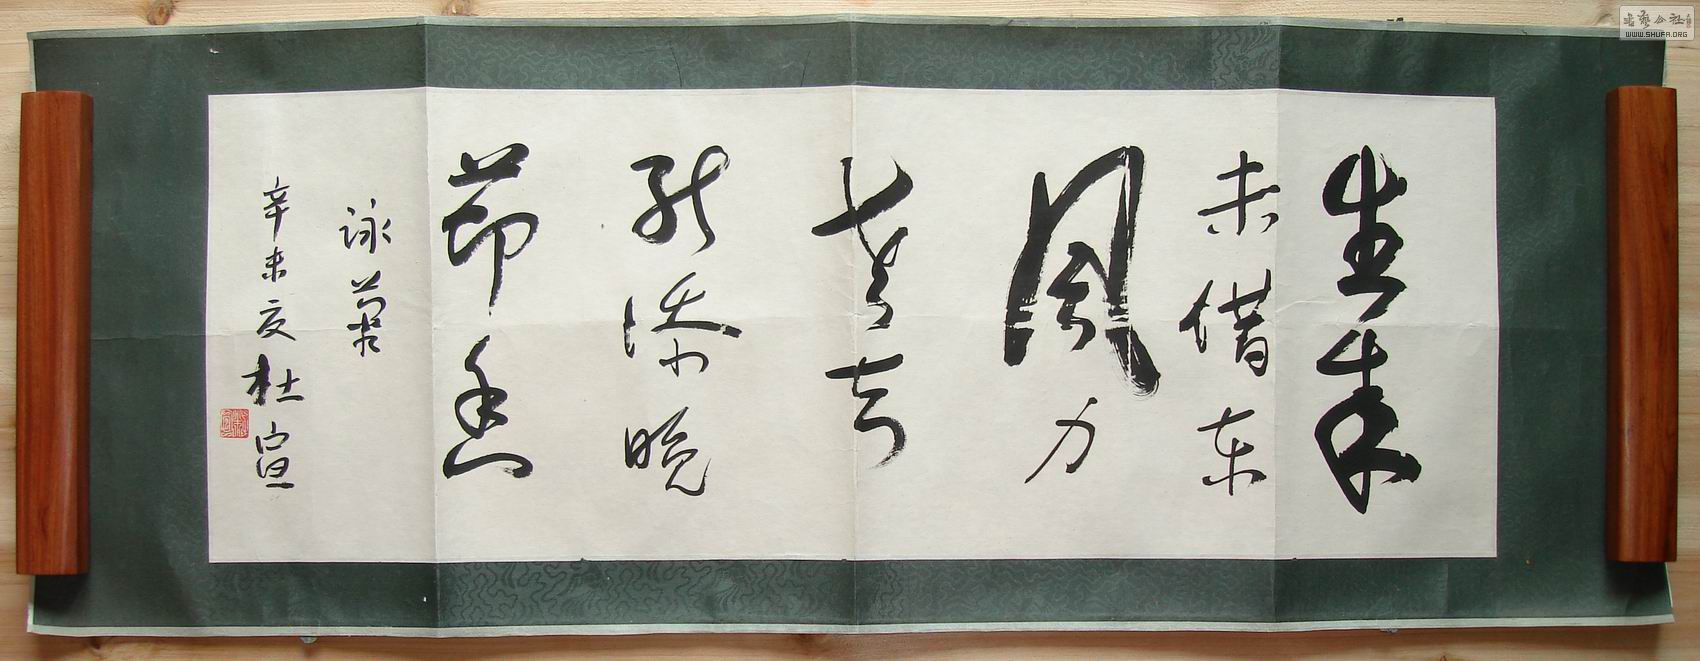 生来
未借东
风力
老去
能添晚
节香
咏菊
辛未夏杜宣
WWW.SHUFA.ORG